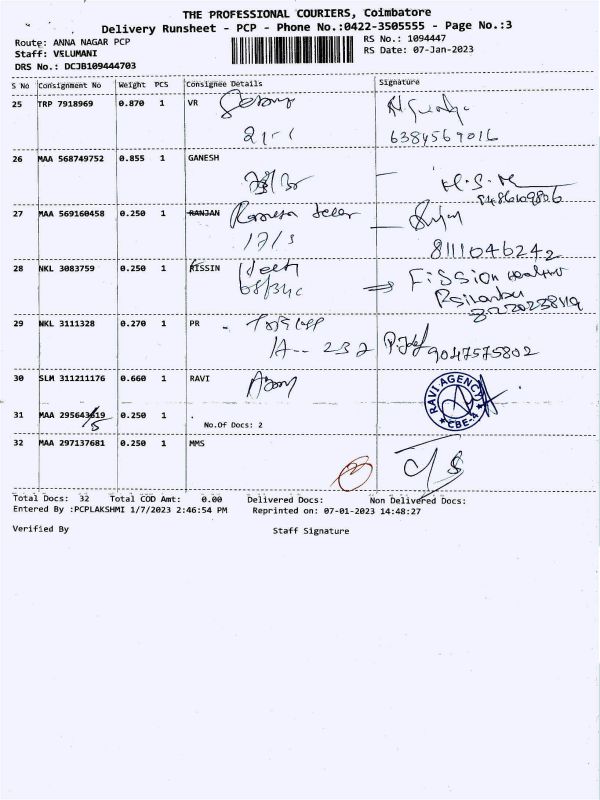 THE PROFESSIONAL COURIERS, Coimbatore
Delivery Runsheet - PCP - Phone No.:0422-3505555 - Page No.:3
Route: ANNA NAGAR PCP
Staff: VELUMANI
DRS No.: DCJB109444703
RS No.: 1094447
RS Date: 07-Jan-2023
S No Consignment No Weight PCS Consignee Details Signature
25 TRP 7918969 0.870 1 VR
6384569016
26 MAA 568749752 0.855 1 GANESH
H.S.M
27 MAA 569160458 0.250 1 RANJAN
17/3
8111046242
28 NKL 3083759 0.250 1 RISSIN
Fission
29 NKL 3111328 0.270 1 PR
9047575802
30 SLM 311211176 0.660 1 RAVI
RAVI AGENCY
CBE-4
31 MAA 295643619 0.250 1 .
No.Of Docs: 2
32 MAA 297137681 0.250 1 MMS
Total Docs: 32 Total COD Amt: 0.00 Delivered Docs: Non Delivered Docs:
Entered By :PCPLAKSHMI 1/7/2023 2:46:54 PM Reprinted on: 07-01-2023 14:48:27
Verified By Staff Signature